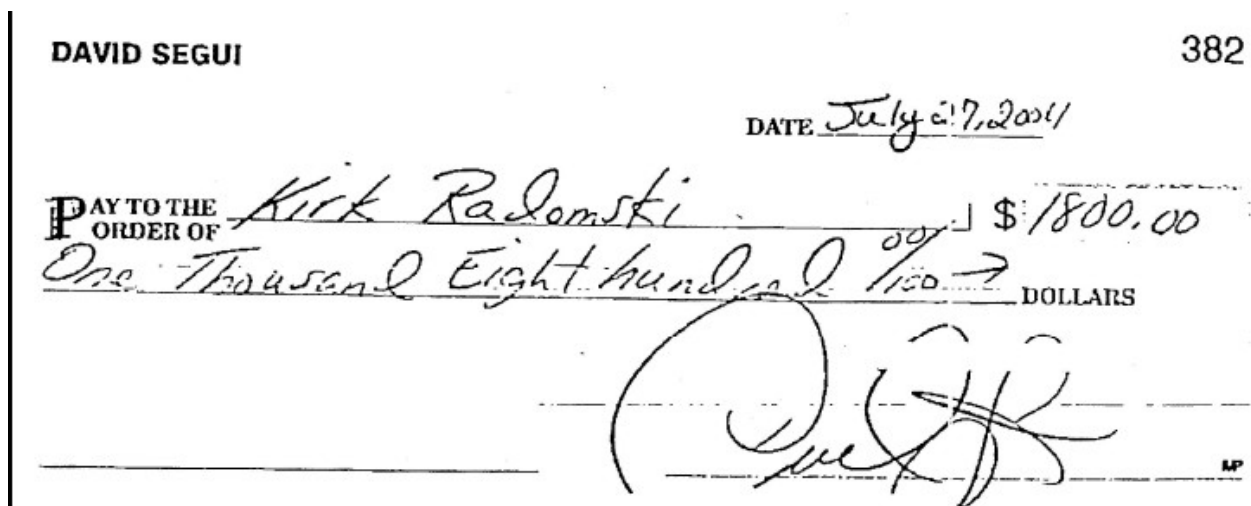 DAVID SEGUI 382
DATE July 27, 2004
PAY TO THE ORDER OF Kirk Radomski $ 1800.00
One Thousand Eight hundred 00/100 → DOLLARS
MP